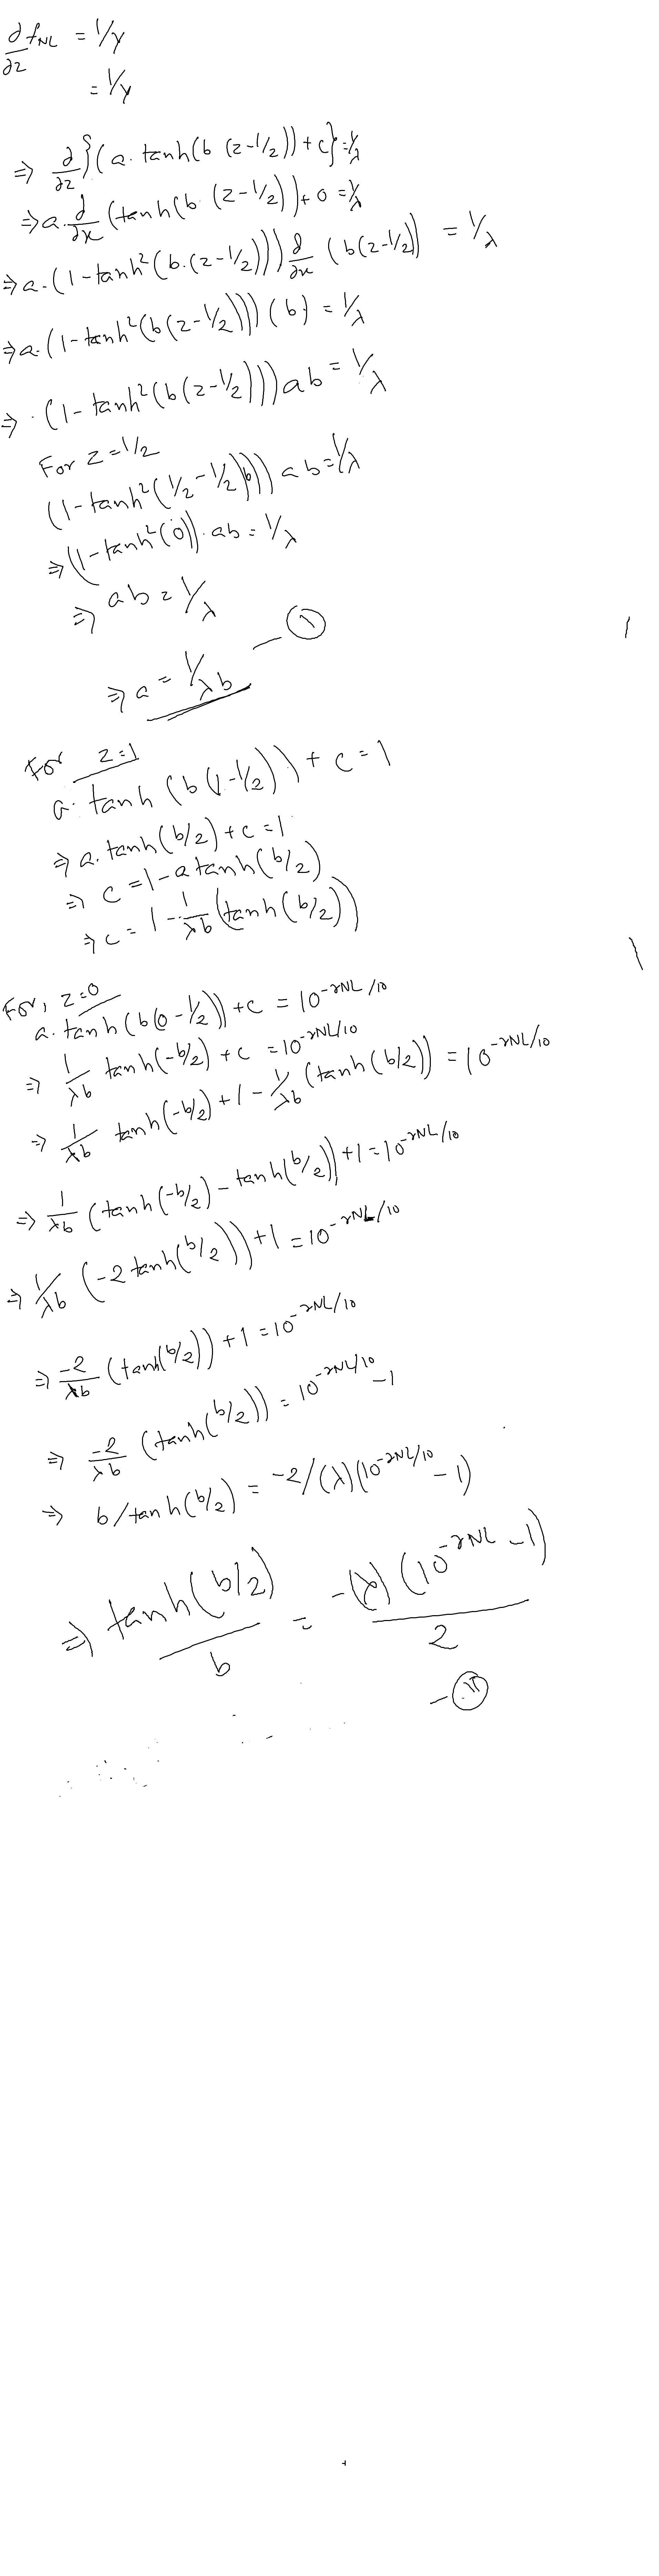 ∂/∂z fNL = 1/γ
= 1/γ
⇒ ∂/∂z {(a. tanh(b (z-1/2)) + c} = 1/λ
⇒ a. ∂/∂x (tanh(b. (z-1/2)) + 0 = 1/λ
⇒ a. (1-tanh²(b.(z-1/2))) ∂/∂x (b(z-1/2)) = 1/λ
⇒ a. (1-tanh²(b(z-1/2))) (b) = 1/λ
⇒ . (1-tanh²(b(z-1/2))) ab = 1/λ
For z=1/2
(1-tanh²(1/2-1/2)b))) ab = 1/λ
⇒ (1-tanh²(0)). ab = 1/λ
⇒ ab = 1/λ
⇒ a = 1/λb — ①
For z=1
a. tanh(b(1-1/2)) + c = 1
⇒ a. tanh(b/2) + c = 1
⇒ c = 1 - a tanh(b/2)
⇒ c = 1 - 1/λb (tanh(b/2))
For, z=0
a. tanh(b(0-1/2)) + c = 10^-rNL/10
⇒ 1/λb tanh(-b/2) + c = 10^-rNL/10
⇒ 1/λb tanh(-b/2) + 1 - 1/λb (tanh(b/2)) = 10^-rNL/10
⇒ 1/λb (tanh(-b/2) - tanh(b/2)) + 1 = 10^-rNL/10
⇒ 1/λb (-2 tanh(b/2)) + 1 = 10^-rNL/10
⇒ -2/λb (tanh(b/2)) + 1 = 10^-rNL/10
⇒ -2/λb (tanh(b/2)) = 10^-rNL/10 - 1
⇒ b/tanh(b/2) = -2/(λ)(10^-rNL/10 - 1)
⇒ tanh(b/2)/b = -(λ)(10^-rNL - 1)/2
— ⑪